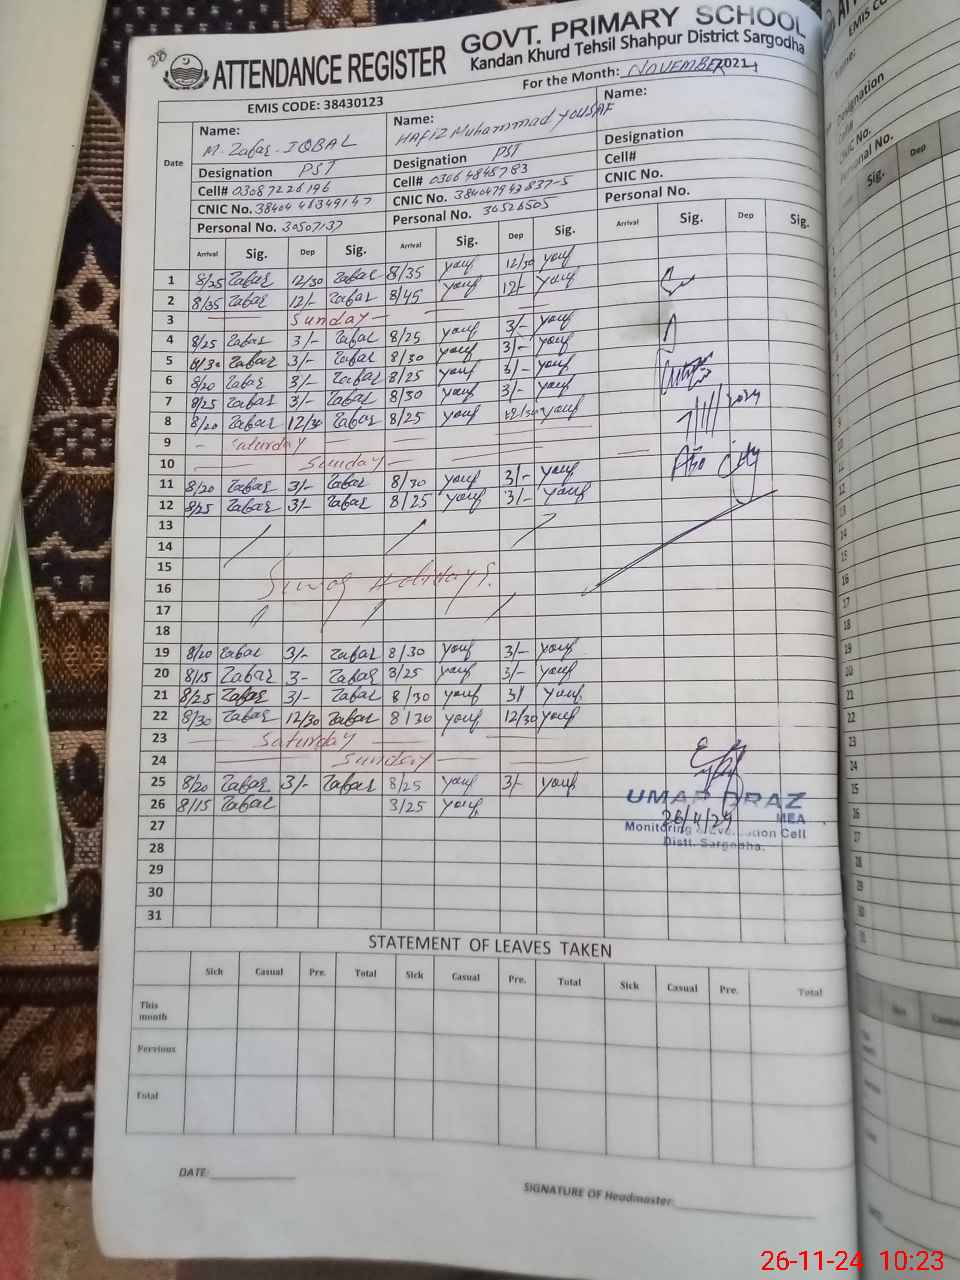 28
ATTENDANCE REGISTER
GOVT. PRIMARY SCHOOL
Kandan Khurd Tehsil Shahpur District Sargodha
EMIS CODE: 38430123
For the Month: NOVEMBER 2024
Date
Name: M. Zafar IQBAL
Name: HAFIZ Muhammad YOUSAF
Name:
Designation PST
Designation PST
Designation
Cell# 03087226196
Cell# 03064848783
Cell#
CNIC No.
CNIC No.
CNIC No.
Personal No. 30507137
Personal No. 30526505
Personal No.
Arrival Sig. Dep Sig. Arrival Sig. Dep Sig. Arrival Sig. Dep Sig.
1 8/25 Zafar 12/30 Zafar 8/35 youf 12/30 youf
2 8/35 Zafar 12/- Zafar 8/45 youf 12/- youf
3 Sunday
4 8/25 Zafar 3/- Zafar 8/25 youf 3/- youf
5 Zafar 3/- Zafar 8/30 youf 3/- youf
6 8/20 Zafar 3/- Zafar 8/25 youf 3/- youf
7 8/25 Zafar 3/- Zafar 8/30 youf 3/- youf
8 8/20 Zafar 12/30 Zafar 8/25 youf 12/30 youf
7/11/2024
9 Saturday
10 Sunday
11 8/20 Zafar 3/- Zafar 8/30 youf 3/- youf
12 8/25 Zafar 3/- Zafar 8/25 youf 3/- youf
13
14
15
16 Smog Holidays.
17
18
19 8/20 Zafar 3/- Zafar 8/30 youf 3/- youf
20 8/15 Zafar 3- Zafar 8/25 youf 3/- youf
21 8/25 Zafar 3/- Zafar 8/30 youf 3/ youf
22 8/30 Zafar 12/30 Zafar 8/30 youf 12/30 youf
23 Saturday
24 Sunday
25 8/20 Zafar 3/- Zafar 8/25 youf 3/- youf
26 8/15 Zafar 8/25 youf
UMAR DRAZ
MEA
26/11/24
Monitoring & Evaluation Cell
Distt. Sargodha.
27
28
29
30
31
STATEMENT OF LEAVES TAKEN
Sick Casual Pre. Total Sick Casual Pre. Total Sick Casual Pre. Total
This month
Pervious
Total
DATE:
SIGNATURE OF Headmaster:
26-11-24 10:23